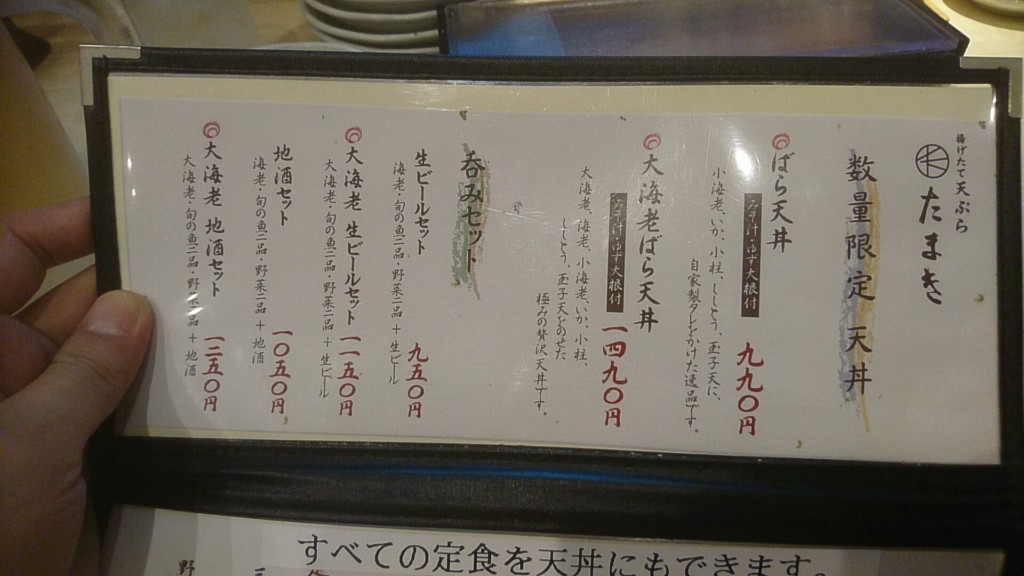 揚げたて天ぷら
たまき
数量限定 天丼
ばら天丼
みそ汁・ゆず大根付
九九〇円
小海老、いか、小柱、ししとう、玉子天に、
自家製タレをかけた逸品です。
大海老ばら天丼
みそ汁・ゆず大根付
一四九〇円
大海老、海老、小海老、いか、小柱、
ししとう、玉子天をのせた
極みの贅沢天丼です。
呑みセット
生ビールセット
九五〇円
海老・旬の魚二品・野菜二品+生ビール
大海老 生ビールセット
一一五〇円
大海老・旬の魚二品・野菜二品+生ビール
地酒セット
一〇五〇円
海老・旬の魚二品・野菜二品+地酒
大海老 地酒セット
一二五〇円
大海老・旬の魚二品・野菜二品+地酒
すべての定食を天丼にもできます。
野